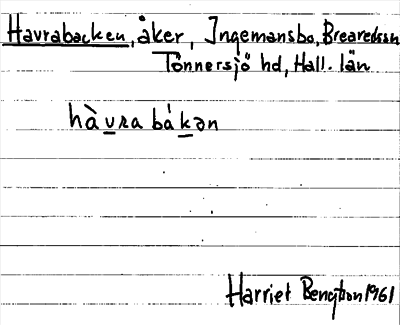 Havrabacken, åker, Ingemansbo, Breareds sn
Tönnersjö hd, Hall. län
hàvra bákən
Harriet Bengtson 1961